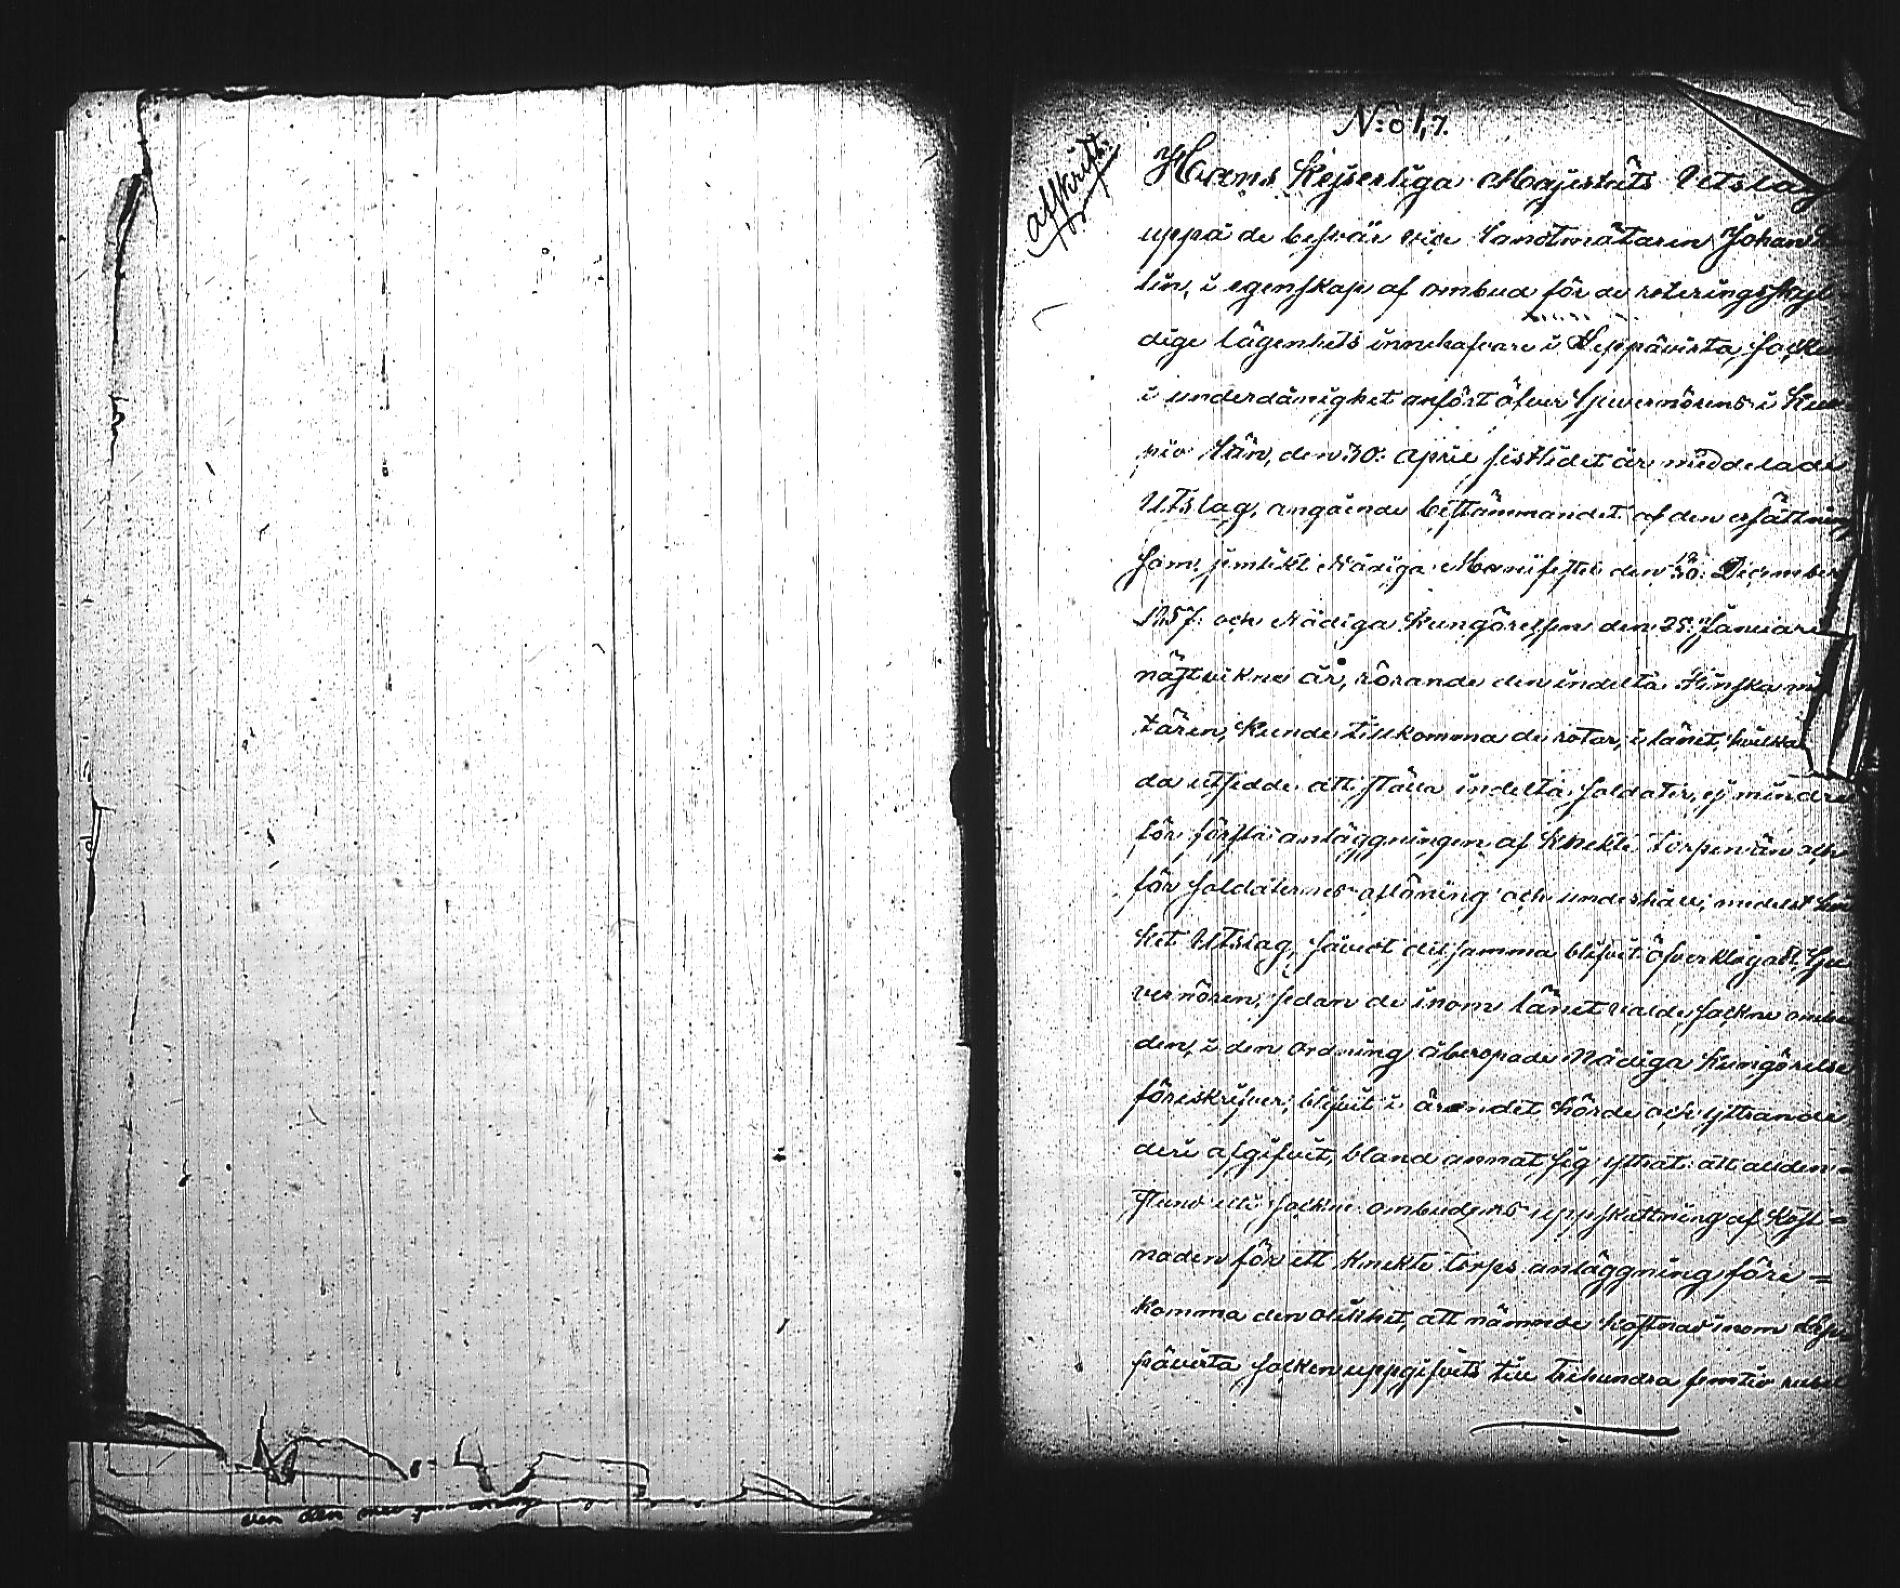 N:o 1,7.
Afskrift.
Hans Kejserliga Majestäts Utslag
uppå de besvär vice Landtmätaren Johan
lin, i egenskap af ombud för de roteringsskyl-
dige lägenhets innehafvare i Leppävirta socken
i underdånighet anfört öfver Guvernörens i Kuo-
pio Län, den 30: April sistlidet år meddelade
Utslag, angående bestämmandet af den ersättning
som, jemlikt Nådiga Manifestet den December
1857. och Nådiga Kungörelsen den 25: Januari
nästvikne år, rörande den indelta Finska mi
tären, kunde tillkomma de rotar, i länet, hvilka
da utsedde att ställa indelta soldater, ej mindre
för första anläggningen af Knekte torpen än och
för soldaternes aflöning och underhåll; medelst
ket Utslag, såvidt detsamma blifvit öfverklagadt, Gu
vernören, sedan de inom länet valde sockne ombu
den, i den ordning åberopade Nådiga Kungörelse
föreskrifver, blifvit i ärendet hörde och yttrande
deri afgifvit, bland annat sig yttrat: att allden-
stund uti sockne ombudens uppskattning af Kost-
naden för ett Knekte torps anläggning före-
komma den olikhet, att nämnde kostnad inom Lep
pävirta socken uppgifvits till trehundra femtio rubel